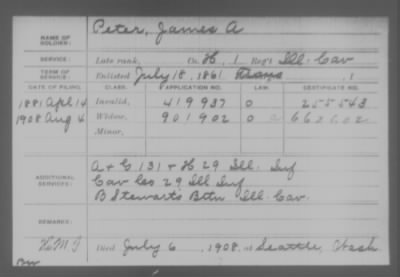 NAME OF SOLDIER: Peter, James A
SERVICE: Late rank, Co. H, 1 Reg't Ill. Cav
TERM OF SERVICE: Enlisted July 18, 1861
DATE OF FILING. CLASS. APPLICATION NO. LAW. CERTIFICATE NO.
1881 Apl 14 Invalid, 419937 0 255543
1908 Aug 4 Widow, 901902 0
Minor,
ADDITIONAL SERVICES: A + G 131 + H 29 Ill. Inf
Cav Co 29 Ill Inf
B Stewarts Bttn Ill. Cav.
REMARKS:
Died July 6, 1908, at Seattle, Wash